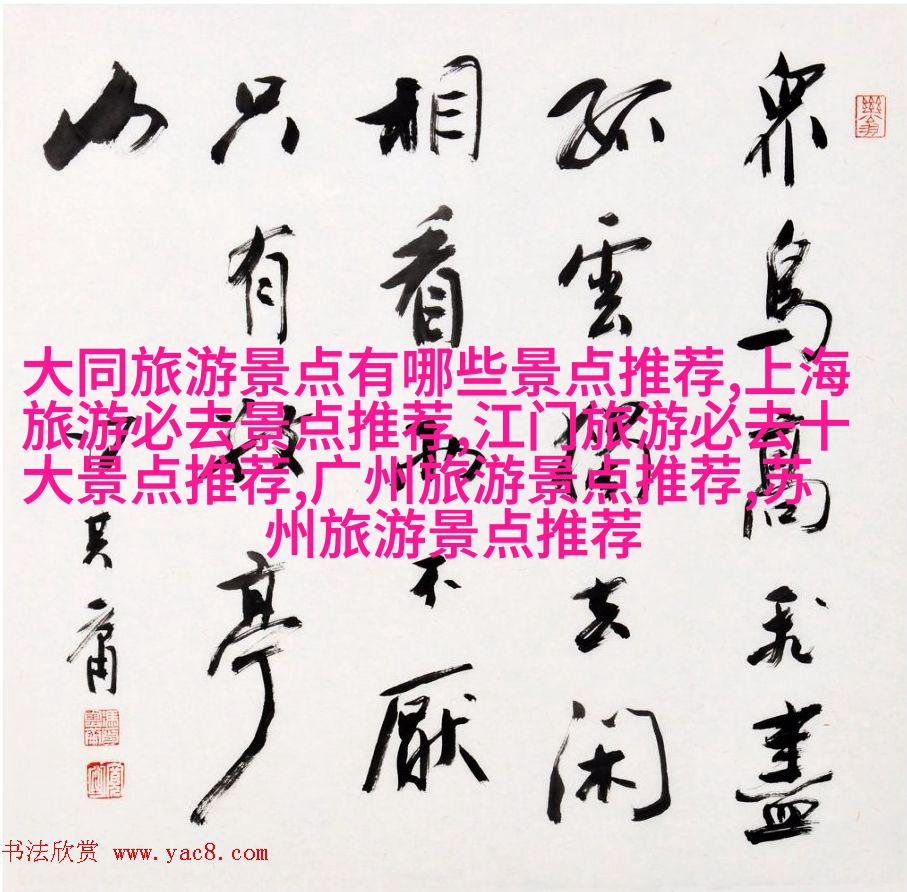 眾鳥高飛盡
孤雲獨去閑
相看兩不厭
只有敬亭
山
其庸
大同旅游景点有哪些景点推荐,上海
旅游必去景点推荐,江门旅游必去十
大景点推荐,广州旅游景点推荐,苏
州旅游景点推荐
书法欣赏 www.yac8.com